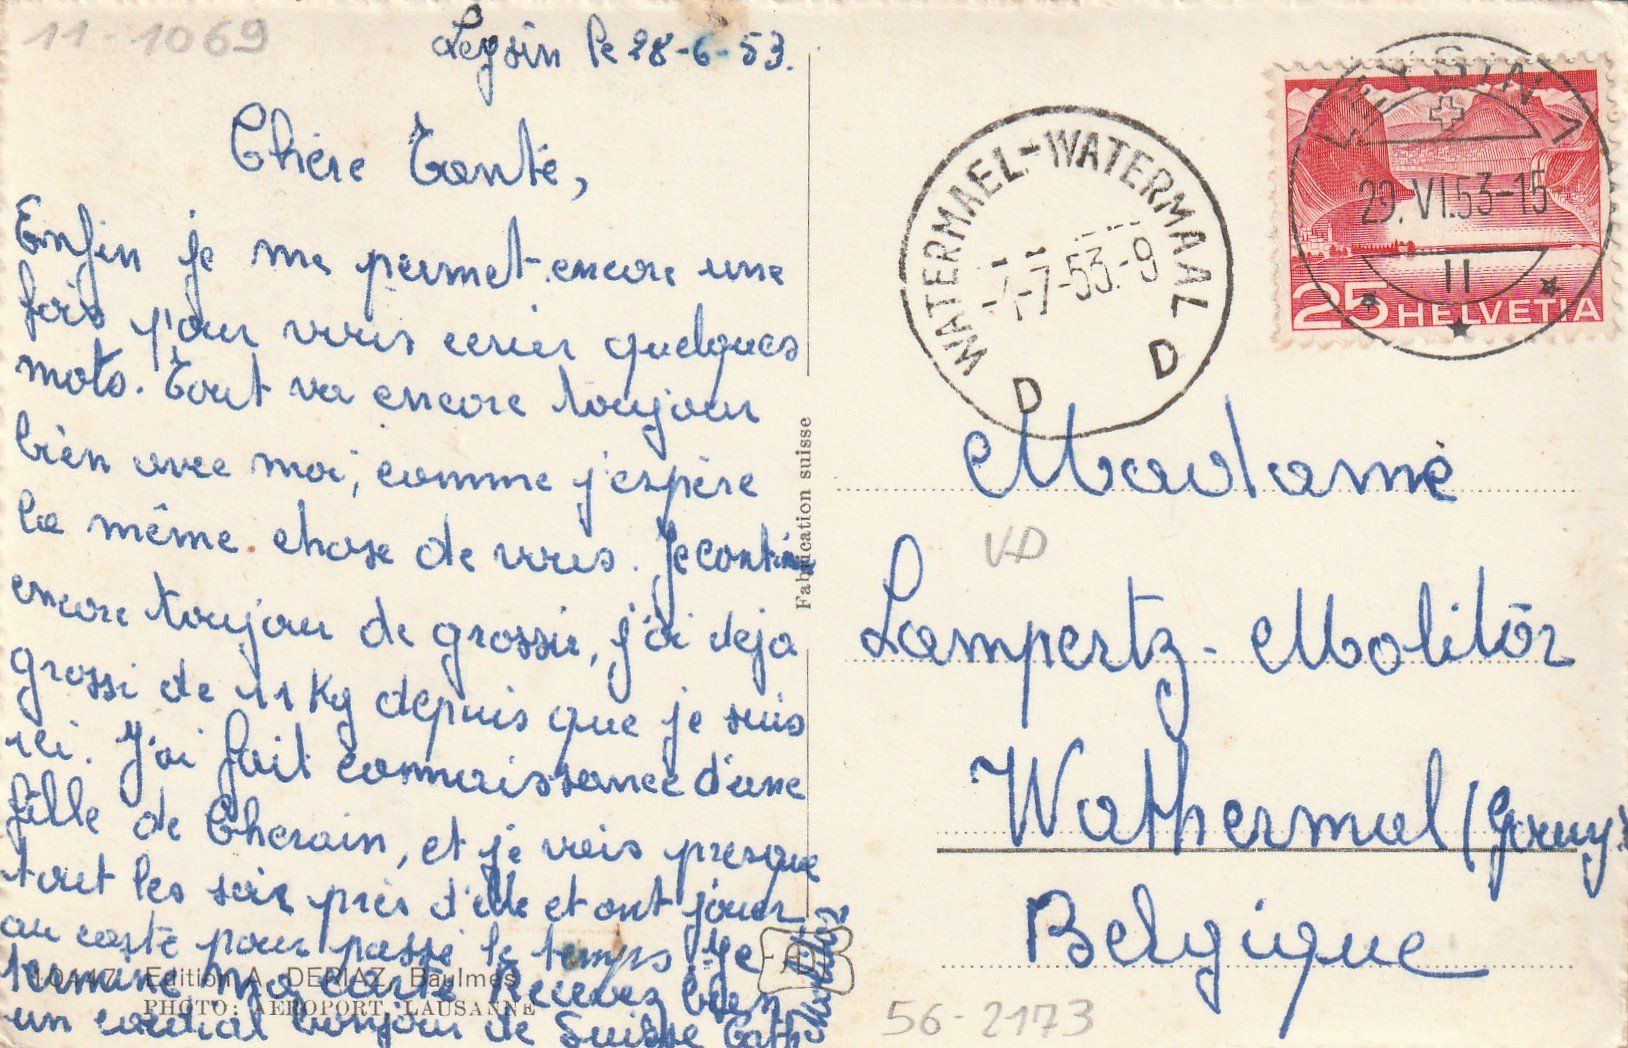 11-1069
Leysin le 28-6-53.
Chère Tante,
Enfin je me permet encore une
fois pour vous ecrier quelques
mots. Tout va encore toujour
bien avec moi, comme j'espère
la même chose de vous. Je contin
encore toujour de grossir, j'ai deja
grossi de 11 Kg depuis que je suis
ici. J'ai fait connaissance d'une
fille de Cherain, et je vais presque
tout les soir près d'elle et ont jouer
au carte pour passé le temps. Je
termine ma carte. Recevez bien
un cordial bonjour de Suisse
10447 Edition A. DERIAZ, Baulmes
PHOTO: AEROPORT, LAUSANNE
Fabrication suisse
WATERMAEL-WATERMAAL
-7-53.-9
D D
LEYSIN 1
29.VI.53-15
II
25 HELVETIA
Madame
VD
Lampertz-Molitor
Wathermal (Gouvy)
Belgique
56-2173